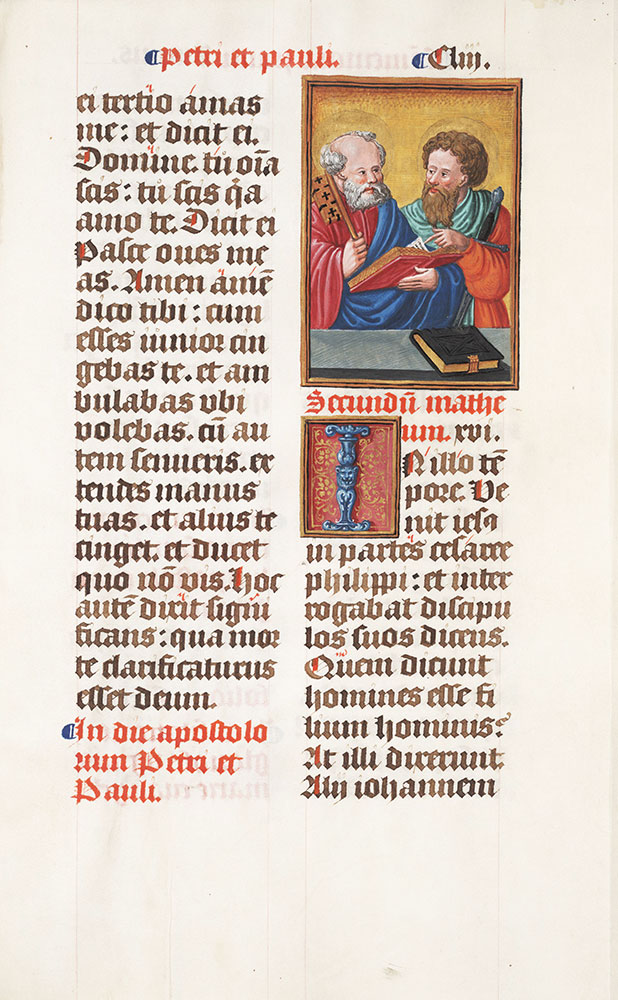 ¶Petri et pauli. ¶Cliii.
ei tertio amas
me: et dicit ei.
Domine. tu oīa
scis: tu scis q̄a
amo te. Dicit ei
Pasce oues me
as. Amen amē
dico tibi: cum
esses iunior cin
gebas te. et am
bulabas vbi
volebas. cū au
tem senueris. ex
tendes manus
tuas. et alius te
cinget. et ducet
quo nō vis. Hoc
autē dixit signi
ficans: qua mor
te clarificaturus
esset deum.
¶In die apostolo
rum Petri et
Pauli.
Secundū mathe
um. xvi.
IN illo tē
pore. Ve
nit iesꝯ
in partes cesaree
philippi: et inter
rogabat discipu
los suos dicens.
Quem dicunt
homines esse fi
lium hominis?
At illi dixerunt
Alij iohannem